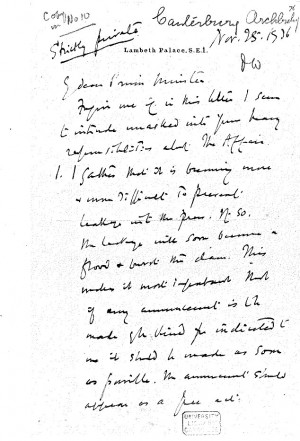 Copy
in No 10
Canterbury, Archbp
Strictly private
Nov. 25. 1936
Lambeth Palace, S.E.1.
My dear Prime Minister
Forgive me if in this letter I seem
to intrude unasked into your heavy
responsibilities about The Affair.
1. I gather that it is becoming more
& more difficult to prevent
leakage into the Press. If so,
the leakage will soon become a
flood & burst the dam. This
makes it most important that
if any announcement is to be
made of the kind you indicated to
me it should be made as soon
as possible. The announcement should
appear as a free act
UNIVERSITY
LIBRARY
CAMBRIDGE